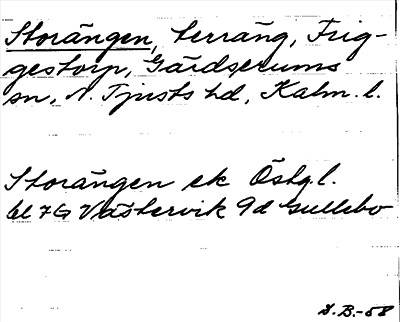 Storängen, terräng, Frig-
gestorp, Gärdserums
sn, N. Tjusts hd, Kalm. l.
Storängen ek Östg. l.
bl 7G Västervik 9d Gullebo
J.B.-58